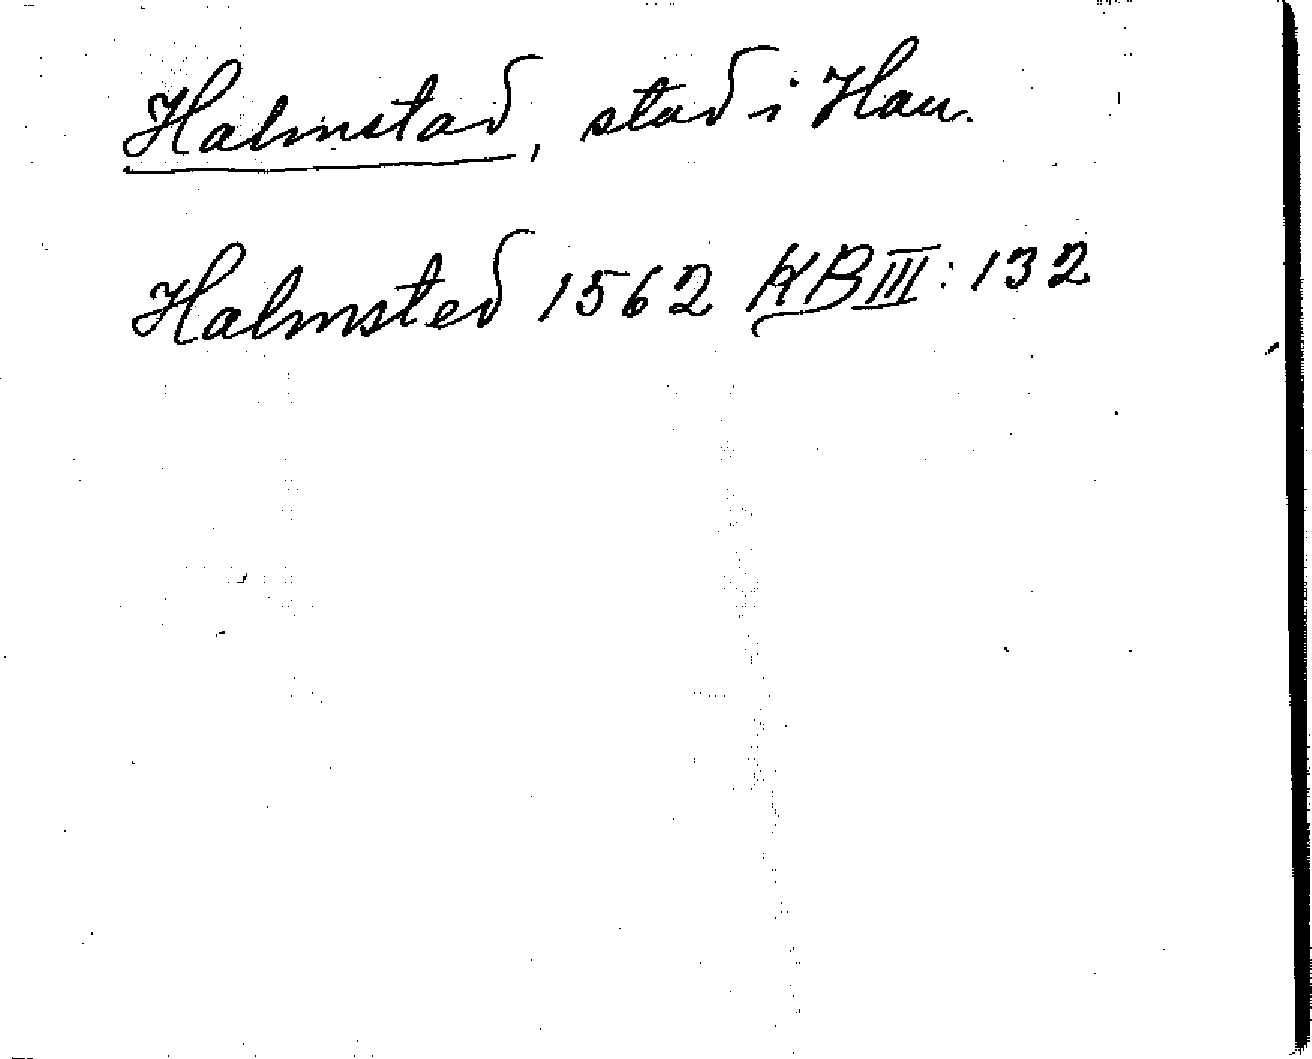 Halmstad, stad i Hau.
Halmsted 1562 KB III: 132